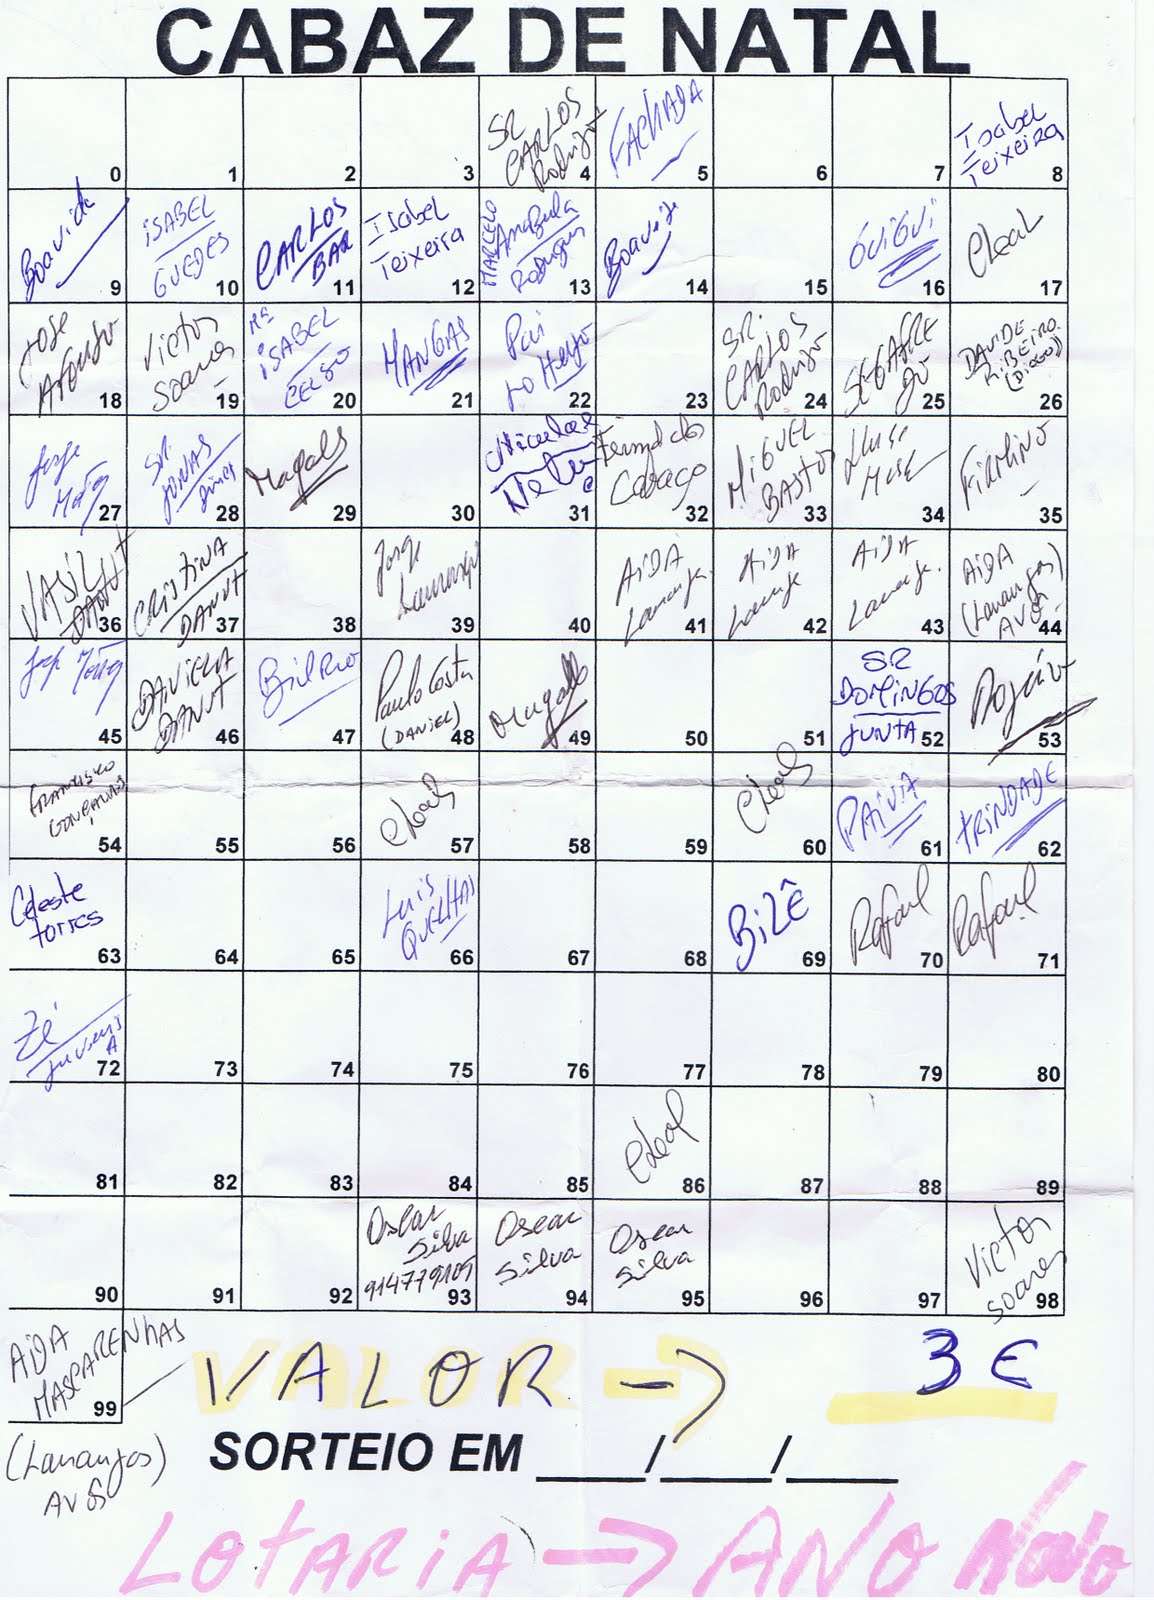 CABAZ DE NATAL
0
1
2
3
SR
CARLOS
Rodrigo
4
FACHADA
5
6
7
Isabel
Teixeira
8
Boavida
9
ISABEL
GUEDES
10
CARLOS
BAR
11
Isabel
Teixeira
12
MARCELO
Anabela
Rodrigues
13
Boavida
14
15
16
Cleal
17
JOSE
Afonso
18
Victor
Soares
19
Mª
ISABEL
CELSO
20
MANGAS
21
Pai
22
23
SR.
CARLOS
Rodrigo
24
SEGAFRE
DO
25
DAVIDE
RIBEIRO
(DIOGO)
26
Jorge
27
SR
JONAS
28
Magalh
29
30
31
Cabaço
32
MIGUEL
BASTOS
33
34
FIRMINO
35
VASILE
DANUT
36
CRISTINA
DANUT
37
38
Jorge
39
40
AIDA
Laranjo.
41
AIDA
Laranjo
42
AIDA
Laranjo.
43
AIDA
(Laranjos)
AVÓS
44
45
DANIELA
DANUT
46
47
Paulo Costa
(DANIEL)
48
49
50
51
SR
DOMINGOS
JUNTA
52
Rogério
53
FRANCISCO
GONÇALVES
54
55
56
57
58
59
60
PAIVA
61
TRINDADE
62
Celeste
torres
63
64
65
Luis
QUELHAS
66
67
68
BIZÊ
69
Rafael
70
Rafael
71
Zé
72
73
74
75
76
77
78
79
80
81
82
83
84
85
Cleal
86
87
88
89
90
91
92
Oscar
Silva
914779109
93
Oscar
Silva
94
Oscar
Silva
95
96
97
Victor
Soares
98
AIDA
MASCARENHAS
99
(Laranjos)
AVÓS
VALOR → 3 €
SORTEIO EM ___/___/___
LOTARIA → ANO NOVO